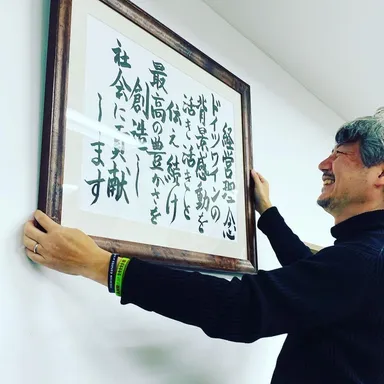 経営理念
ドイツワインの
背景感動を
活き活きと
伝え続け
最高の豊かさを
創造し
社会に貢献
します